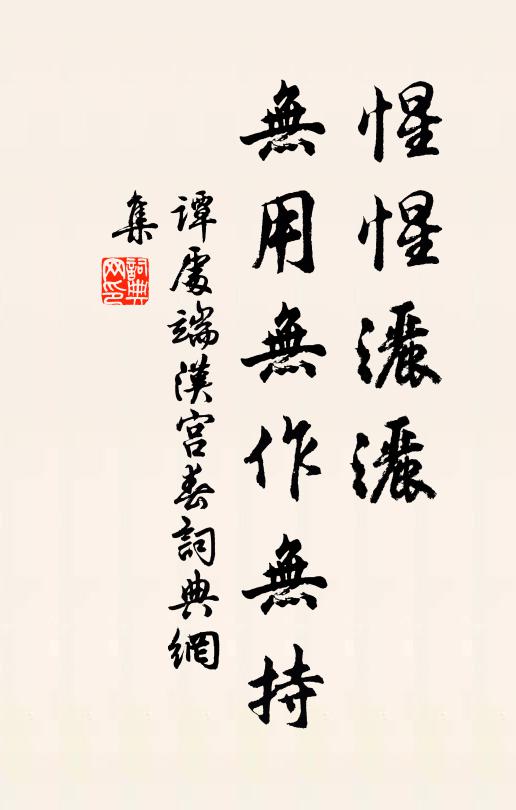 惺惺灑灑
無用無作無持
譚處端漢宮春詞典網
集
詞典
网印